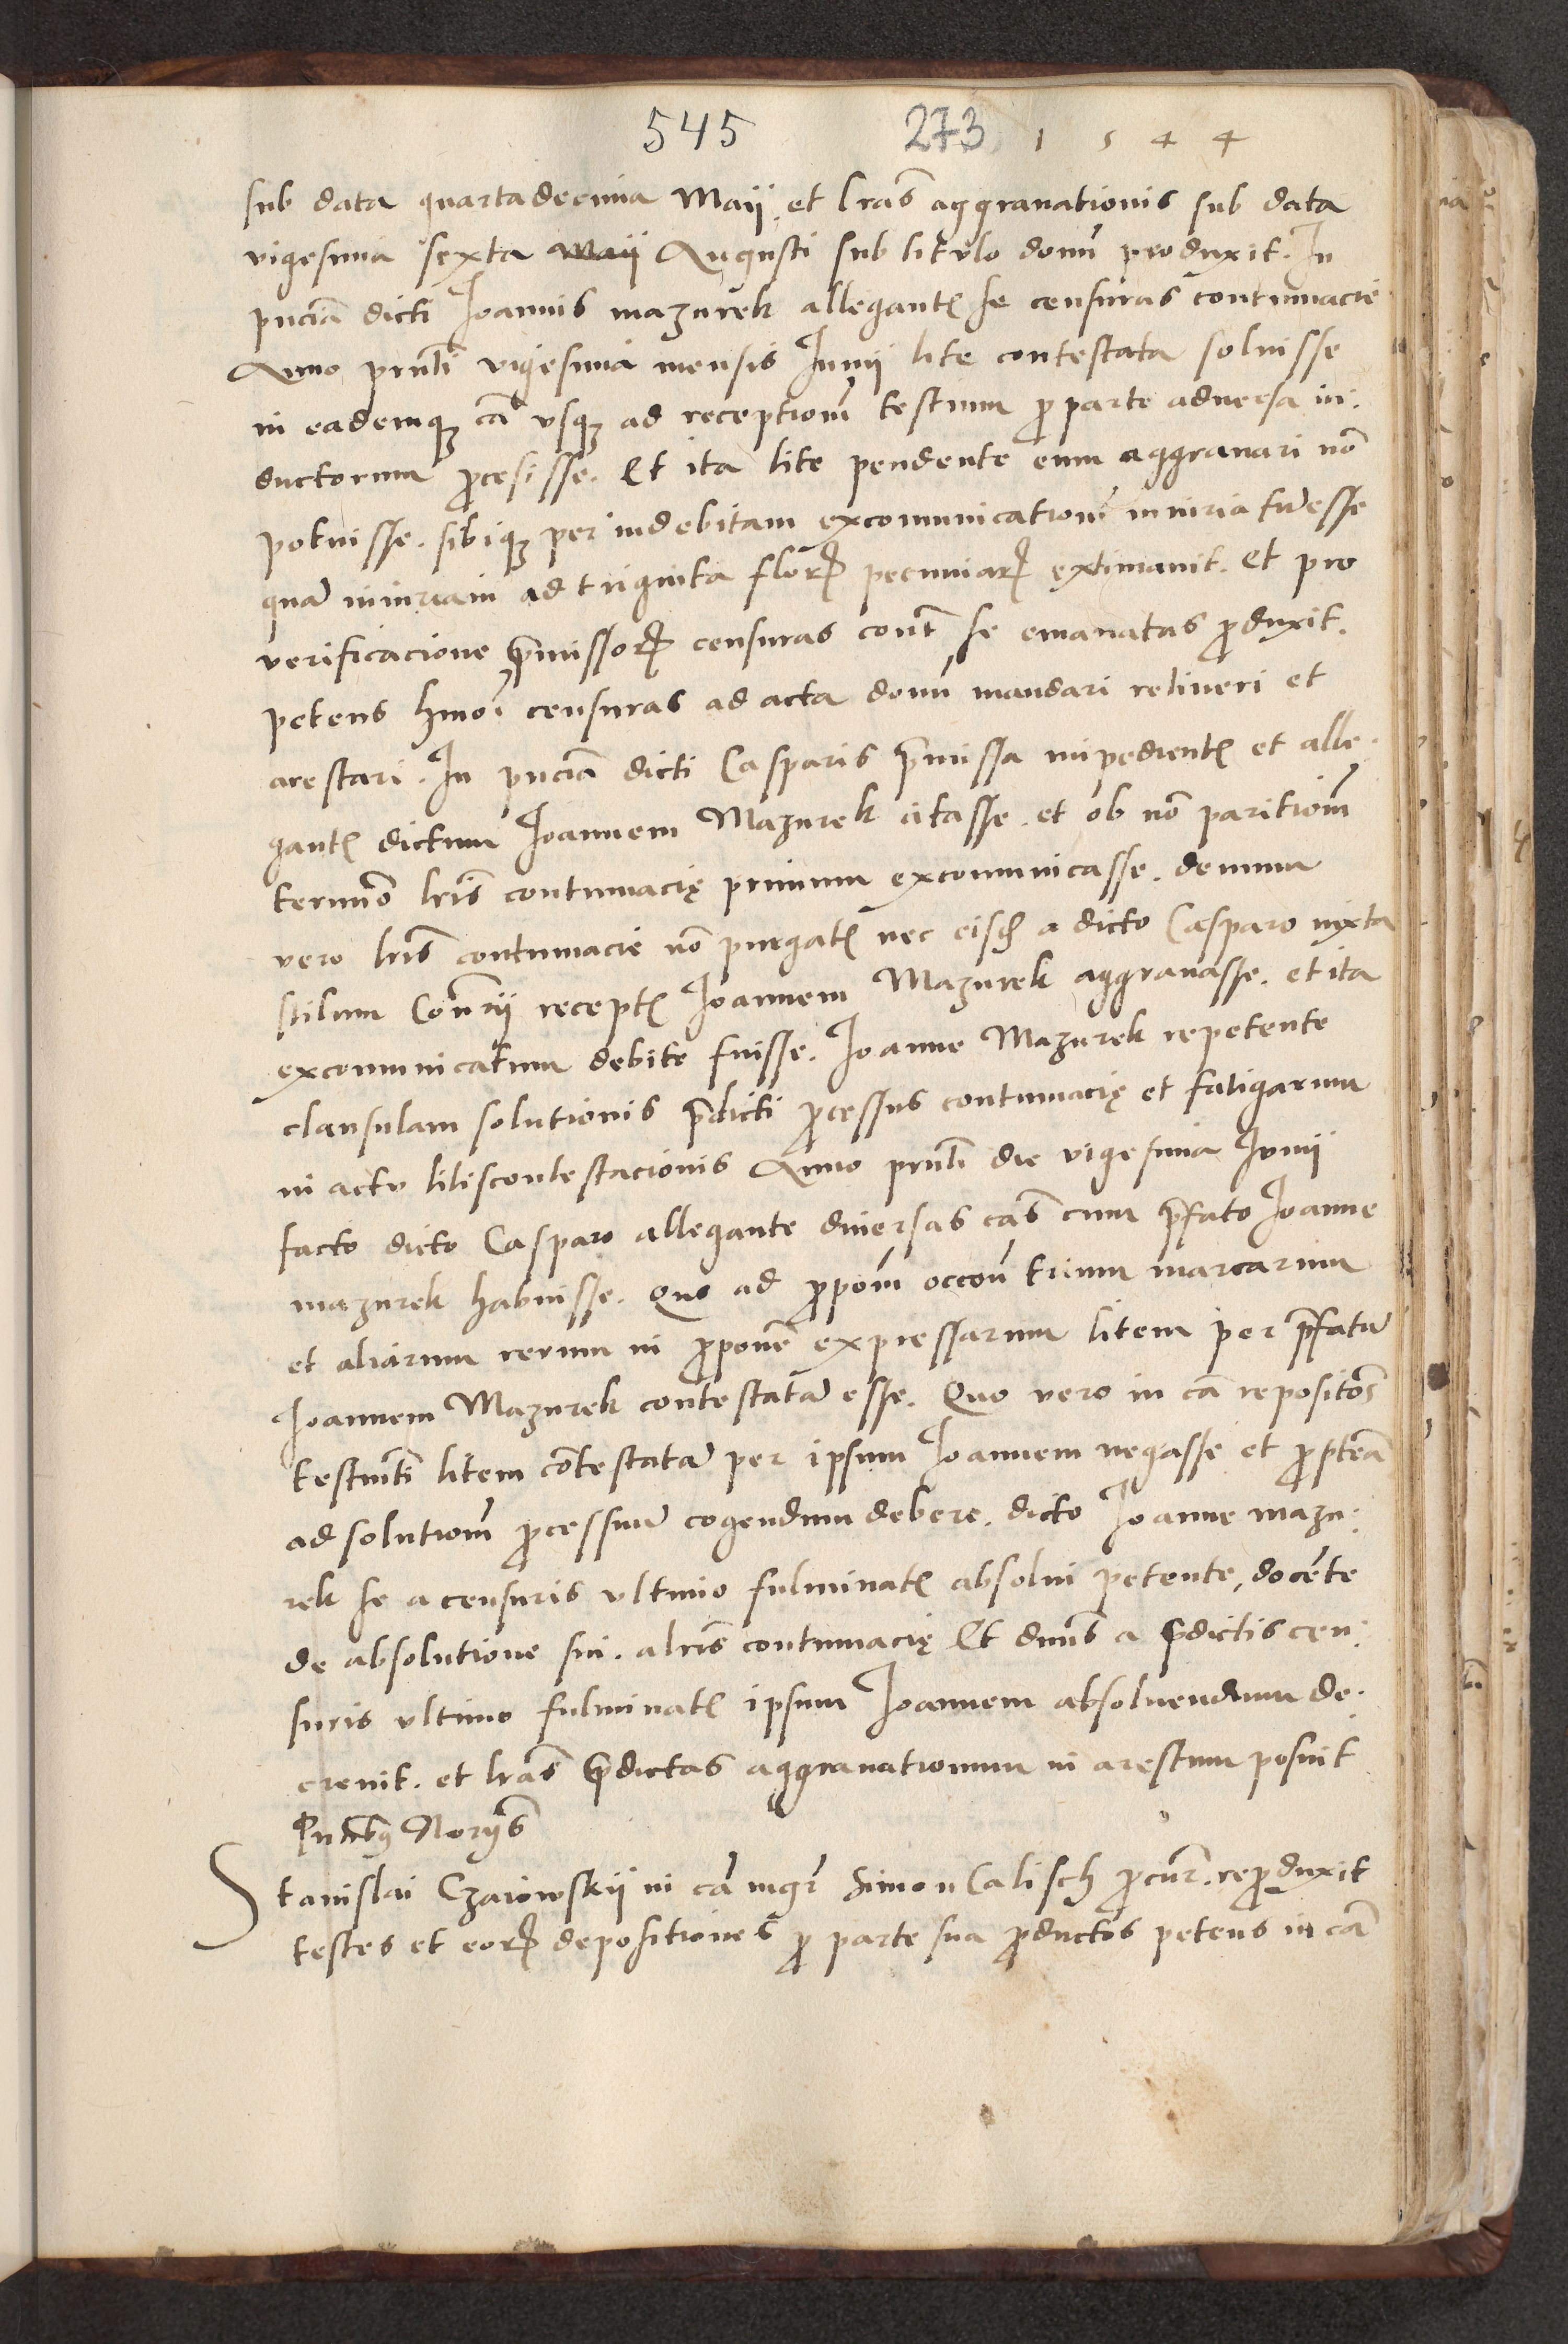 545 273 1 5 4 4
sub data quartadecima Maij. et lras̃ aggrauationis sub data
vigesima sexta Maij Augusti sub titulo domĩ produxit. In
pñciã dicti Ioannis mazurek allegantꝭ se censuras contumacie
Anno prñti vigesima mensis Iunij lite contestata soluisse
in eademqꝫ cã vsqꝫ ad receptionẽ testium ꝓ parte aduersa in:
ductorum ꝓcesisse. Et ita lite pendente eum aggrauari nõ
potuisse. sibiqꝫ per indebitam excomunicationẽ iniuriã fuisse
quã iniuriam ad triginta florꝝ pecuniarꝝ extimauit. et pro
verificacione p̃missorꝝ censuras cont̃ se emanatas ꝓduxit.
petens hmõi censuras ad acta domĩ mandari retineri et
arestari. In pñciã dicti Casparis p̃missa impedientꝭ et alle:
gantꝭ dictum Ioannem Mazurek citasse. et ob nõ paritionẽ
terminõ lrĩs contumacię primum excomunicasse. demum
vero lrĩs contumacie nõ purgatꝭ nec eisdẽ a dicto Casparo iuxta
stilum Consrij receptꝭ Ioannem Mazurek aggrauasse. et ita
excomunicatum debite fuisse. Ioanne Mazurek repetente
clausulam solutionis p̃dicti ꝓcessus contumacię et fatigarum
in actu litiscontestacionis Anno prñti die vigesima Iunij
facto dicto Casparo allegante diuersas cãs cum p̃fato Ioanne
mazurek habuisse. Quo ad ꝓpom̃ occoñ trium marcarum
et aliarum rerum in ꝓponẽ expressarum litem per p̃fatũ
Ioannem Mazurek contestatã esse. Quo vero in cã repositõis
testim̃ti litem cõtestatã per ipsum Ioannem negasse et ꝓptereã
ad solutionẽ ꝓcessuũ cogendum debere. dicto Ioanne mazu:
rek se a censuris vltimo fulminatꝭ absolui petente, docẽte
de absolutione sui. a lrĩs contumacię Et dnũs a p̃dictis cen:
suris vltimo fulminatꝭ ipsum Ioannem absoluendum de:
creuit. et lrãs p̃dictas aggrauationum in arestum posuit
Pñtibꝰ Norijs̃
Stanislai Czaiowskij in cã mgr̃ Simon Calisch ꝓcur̃. reꝓduxit
testes et eorꝝ depositiones ꝓ parte sua ꝓductos petens in cã